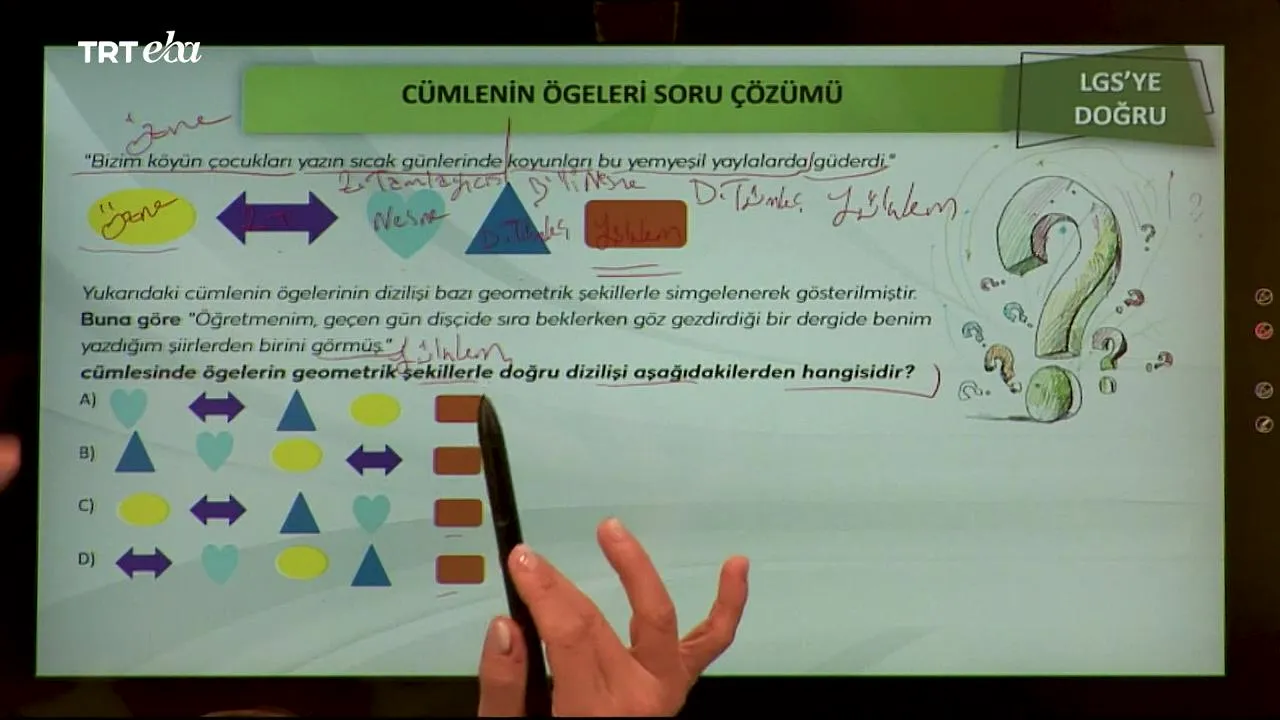 TRT eba
CÜMLENİN ÖGELERİ SORU ÇÖZÜMÜ
LGS'YE
DOĞRU
Özne
"Bizim köyün çocukları yazın sıcak günlerinde koyunları bu yemyeşil yaylalarda güderdi."
Z. Tamlayıcısı B.li Nesne D. Tümleç Yüklem
Özne Z.T Nesne D. Tümleç Yüklem
Yukarıdaki cümlenin ögelerinin dizilişi bazı geometrik şekillerle simgelenerek gösterilmiştir.
Buna göre "Öğretmenim, geçen gün dişçide sıra beklerken göz gezdirdiği bir dergide benim
yazdığım şiirlerden birini görmüş." Yüklem
cümlesinde ögelerin geometrik şekillerle doğru dizilişi aşağıdakilerden hangisidir?
A)
B)
C)
D)